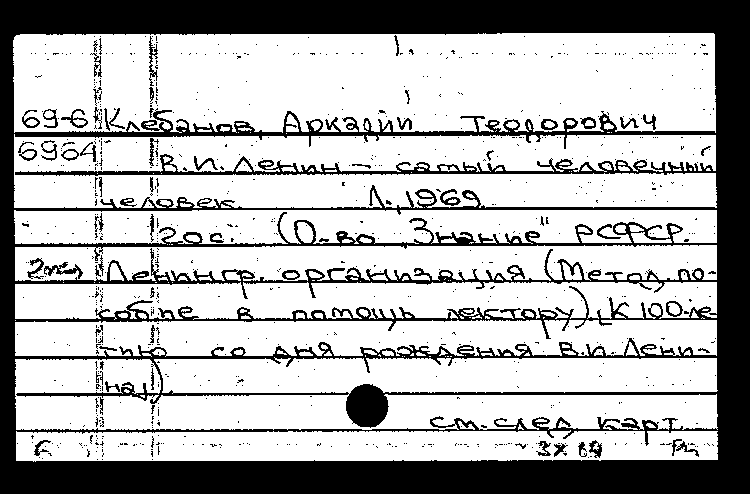 1.
69-6 Клебанов, Аркадий Теодорович
6964 В.И. Ленин – самый человечный
человек. Л., 1969.
20с. (О-во „Знание" РСФСР.
2экз Ленингр. организация. (Метод. по-
собие в помощь лектору). [К 100-ле
тию со дня рождения В.И. Лени-
на]).
см. след. карт.
6 3X 69